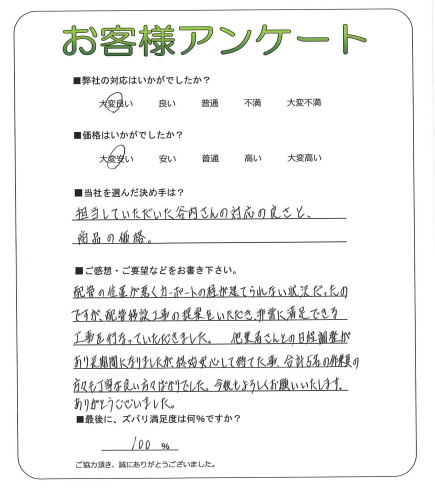 お客様アンケート
■弊社の対応はいかがでしたか？
大変良い 良い 普通 不満 大変不満
■価格はいかがでしたか？
大変安い 安い 普通 高い 大変高い
■当社を選んだ決め手は？
担当していただいた谷内さんの対応の良さと、
商品の価格。
■ご感想・ご要望などをお書き下さい。
配管の位置が悪くカーポートの柱が建てられない状況だったの
ですが、配管移設工事の提案をいただき、非常に満足できる
工事を行なっていただきました。 他業者さんとの日程調整が
あり長期間になりましたが、終始安心して待てた事、合計5名の作業員の
方々も丁寧な良い方々ばかりでした。今後もよろしくお願いいたします。
ありがとうございました。
■最後に、ズバリ満足度は何％ですか？
100 ％
ご協力頂き、誠にありがとうございました。